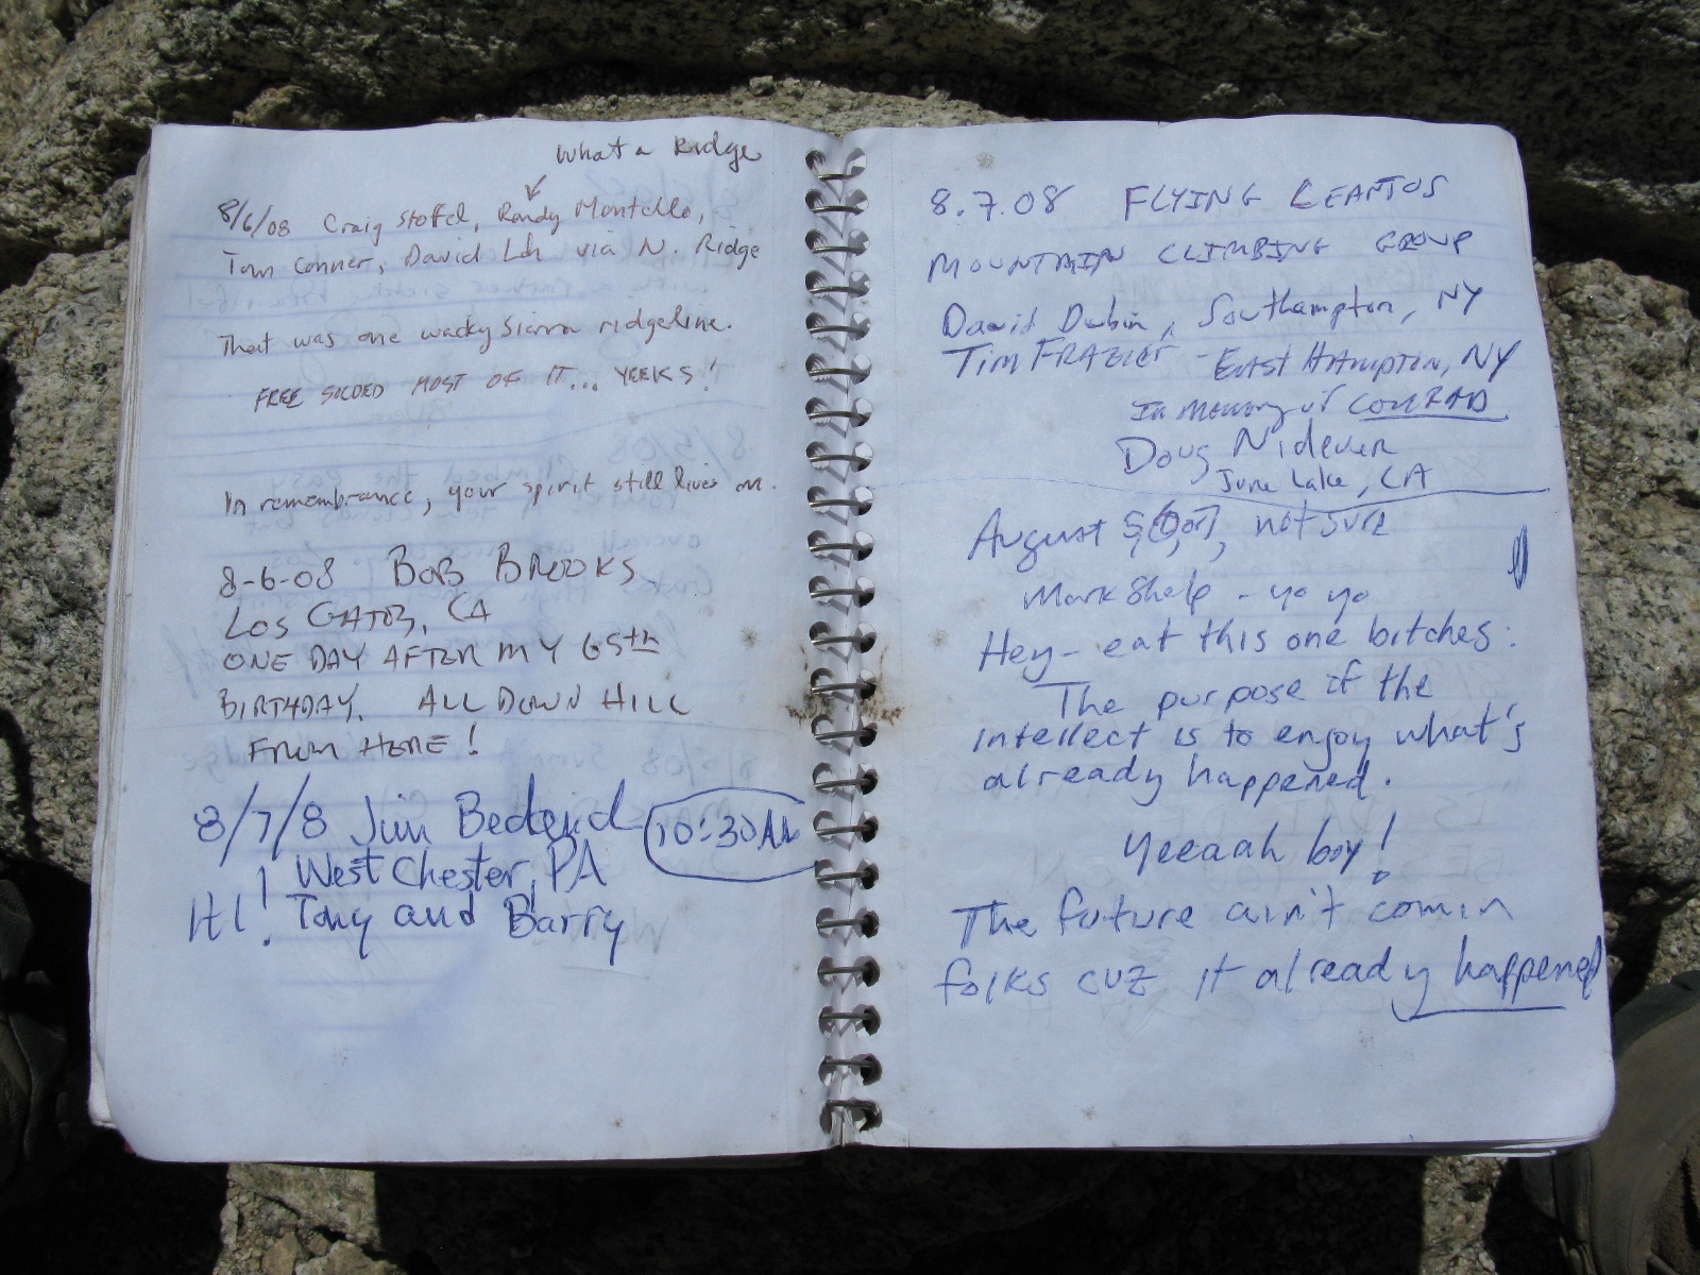 What a Ridge
8/6/08 Craig Stoffel, Randy Montello,
Tom Conner, David via N. Ridge
That was one wacky Sierra ridgeline.
FREE SOLOED MOST OF IT... YEEKS!
In remembrance, your spirit still lives on.
8-6-08 BOB BROOKS
LOS GATOS, CA
ONE DAY AFTER MY 65th
BIRTHDAY. ALL DOWN HILL
FROM HERE!
8/7/8 Jim 10:30AM
West Chester, PA
HI! Tony and Barry
8.7.08 FLYING LEAPTOS
MOUNTAIN CLIMBING GROUP
David Dubin, Southampton, NY
TIM FRAZIER - EAST HAMPTON, NY
In memory of CONRAD
Doug Nidever
June Lake, CA
August 5,6,or7, not sure
Mark Shelp - yo yo
Hey - eat this one bitches:
The purpose if the
intellect is to enjoy what's
already happened.
Yeeaah boy!
The future ain't comin
folks cuz it already happened